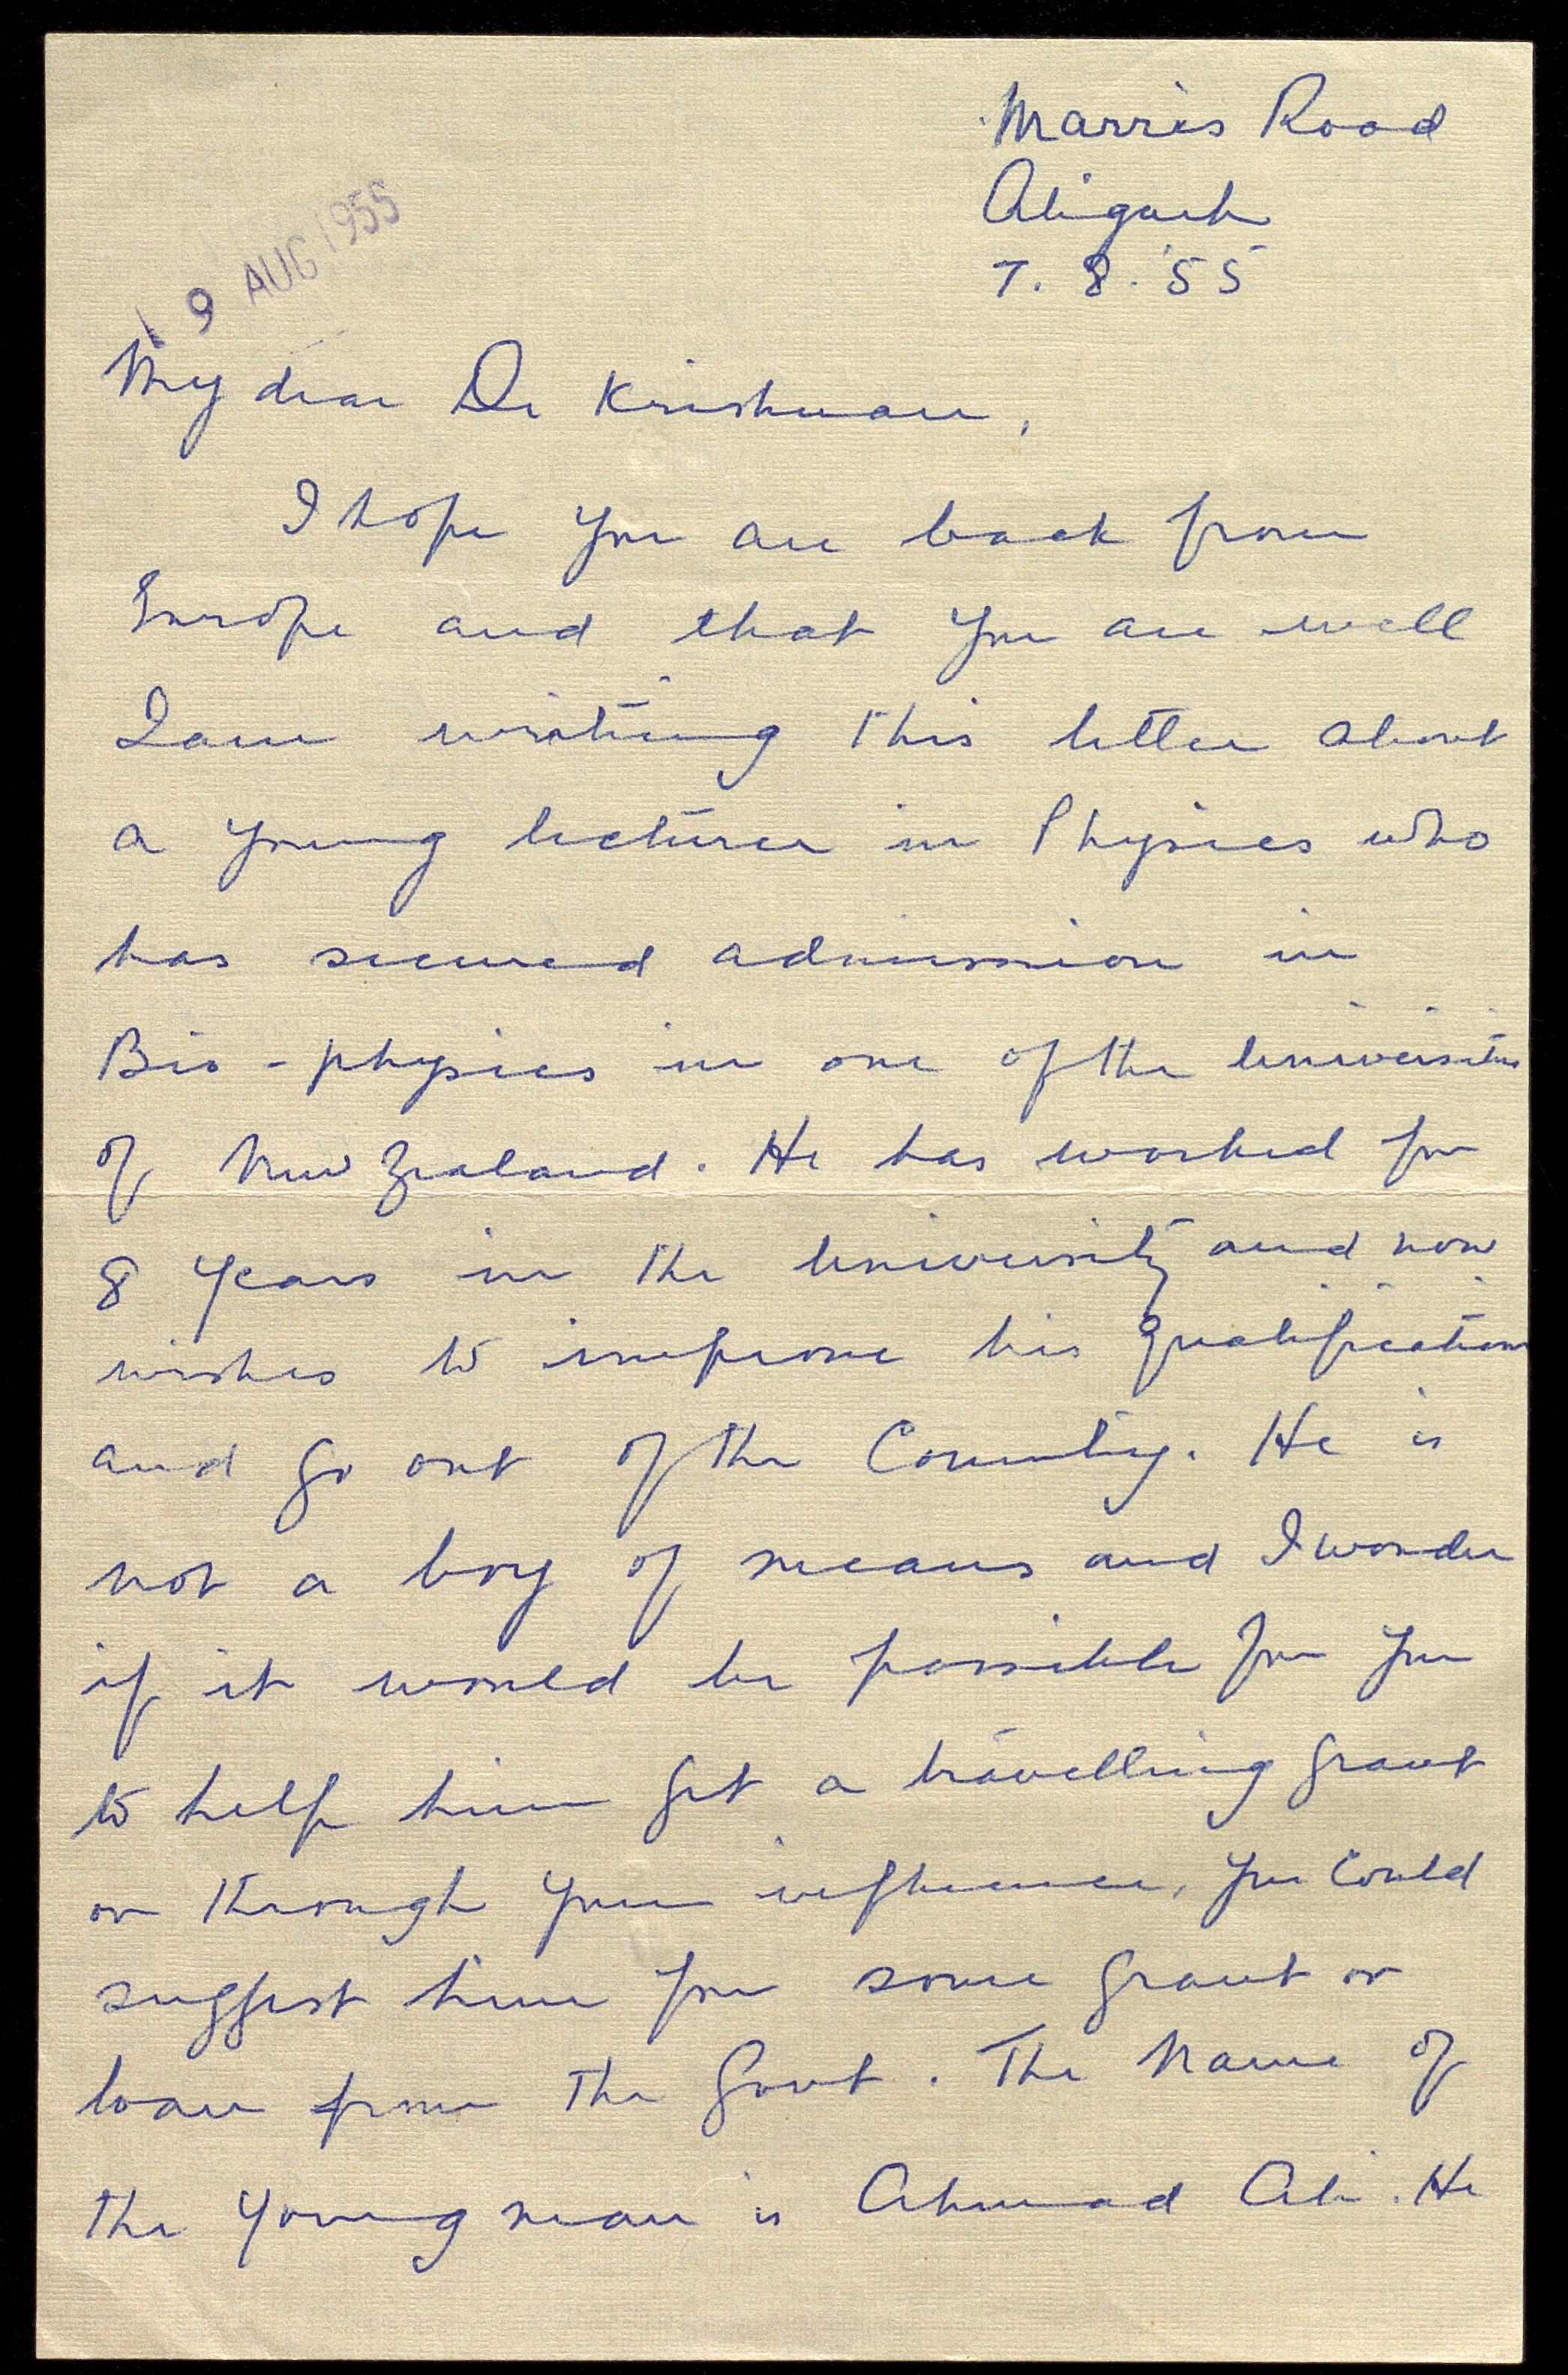 Marris Road
Aligarh
7. 8. '55
9 AUG 1955
My dear Dr Krishnan,
I hope you are back from
Europe and that you are well
I am writing this letter about
a young lecturer in Physics who
has secured admission in
Bio-physics in one of the Universities
of New Zealand. He has worked for
8 years in the University and now
wishes to improve his qualifications
and go out of the Country. He is
not a boy of means and I wonder
if it would be possible for you
to help him get a travelling grant
or through your influence, you could
suggest him for some grant or
loan from the Govt. The Name of
the young man is Ahmad Ali. He